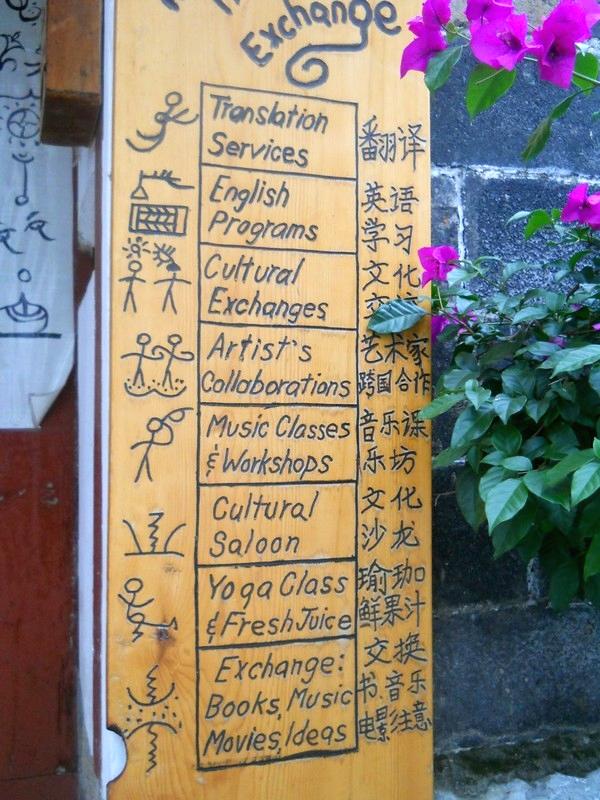 Exchange
Translation
Services
翻译
English
Programs
英语
学习
Cultural
Exchanges
文化
Artist's
Collaborations
艺术家
跨国合作
Music Classes
& Workshops
音乐课
乐坊
Cultural
Saloon
文化
沙龙
Yoga Class
& Fresh Juice
瑜珈
鲜果汁
Exchange:
Books, Music
Movies, Ideas
交换
书.音乐
电影注意